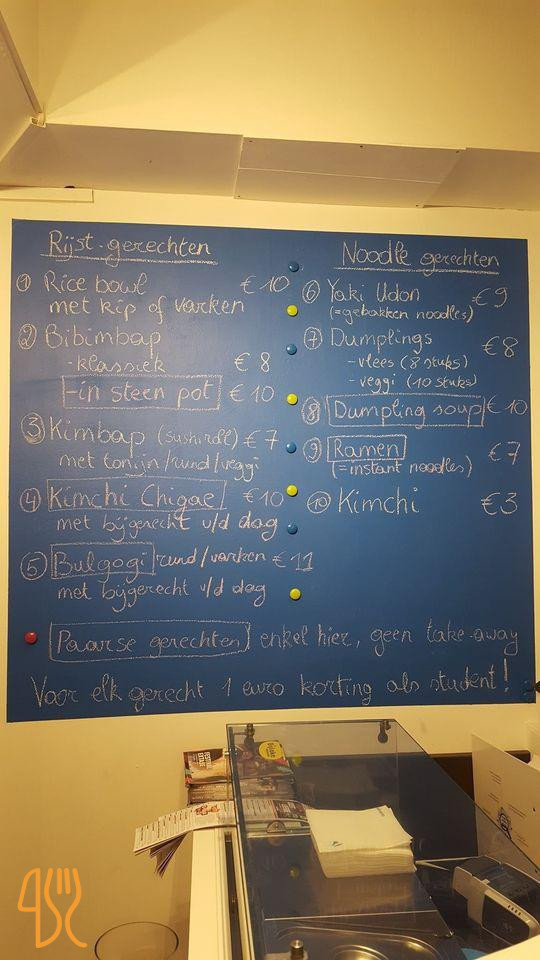 Rijst-gerechten
① Rice bowl €10
met kip of varken
② Bibimbap
-klassiek €8
-in steen pot €10
③ Kimbap (sushirol) €7
met tonijn/rund/veggi
④ Kimchi Chigae €10
met bijgerecht v/d dag
⑤ Bulgogi rund/varken €11
met bijgerecht v/d dag
Noodle gerechten
⑥ Yaki Udon €9
(=gebakken noodles)
⑦ Dumplings €8
-vlees (8 stuks)
-veggi (10 stuks)
⑧ Dumpling soup €10
⑨ Ramen €7
(=instant noodles)
⑩ Kimchi €3
Paarse gerechten enkel hier, geen take-away
Voor elk gerecht 1 euro korting als student!